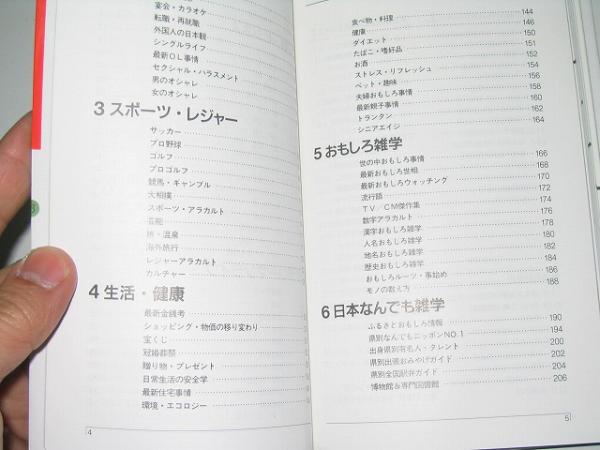 宴会・カラオケ
転職・再就職
外国人の日本観
シングルライフ
最新OL事情
セクシャル・ハラスメント
男のオシャレ
女のオシャレ
3 スポーツ・レジャー
サッカー
プロ野球
ゴルフ
プロゴルフ
競馬・ギャンブル
大相撲
スポーツ・アラカルト
芸能
旅・温泉
海外旅行
レジャーアラカルト
カルチャー
4 生活・健康
最新金銭考
ショッピング・物価の移り変わり
宝くじ
冠婚葬祭
贈り物・プレゼント
日常生活の安全学
最新住宅事情
環境・エコロジー
4
食べ物・料理 144
健康 146
ダイエット 150
たばこ・嗜好品 151
お酒 152
ストレス・リフレッシュ 154
ペット・趣味 156
夫婦おもしろ事情 158
最新親子事情 160
トランタン 162
シニアエイジ 164
5 おもしろ雑学
世の中おもしろ事情 166
最新おもしろ世相 168
最新おもしろウォッチング 170
流行語 172
TV/CM傑作集 174
数字アラカルト 176
漢字おもしろ雑学 178
人名おもしろ雑学 180
地名おもしろ雑学 182
歴史おもしろ雑学 184
おもしろルーツ・事始め 186
モノの数え方 188
6 日本なんでも雑学
ふるさとおもしろ情報 190
県別なんでもニッポンNO.1 194
出身県別有名人・タレント 200
県別出張おみやげガイド 202
県別全国訳弁ガイド 204
博物館&専門図書館 206
5